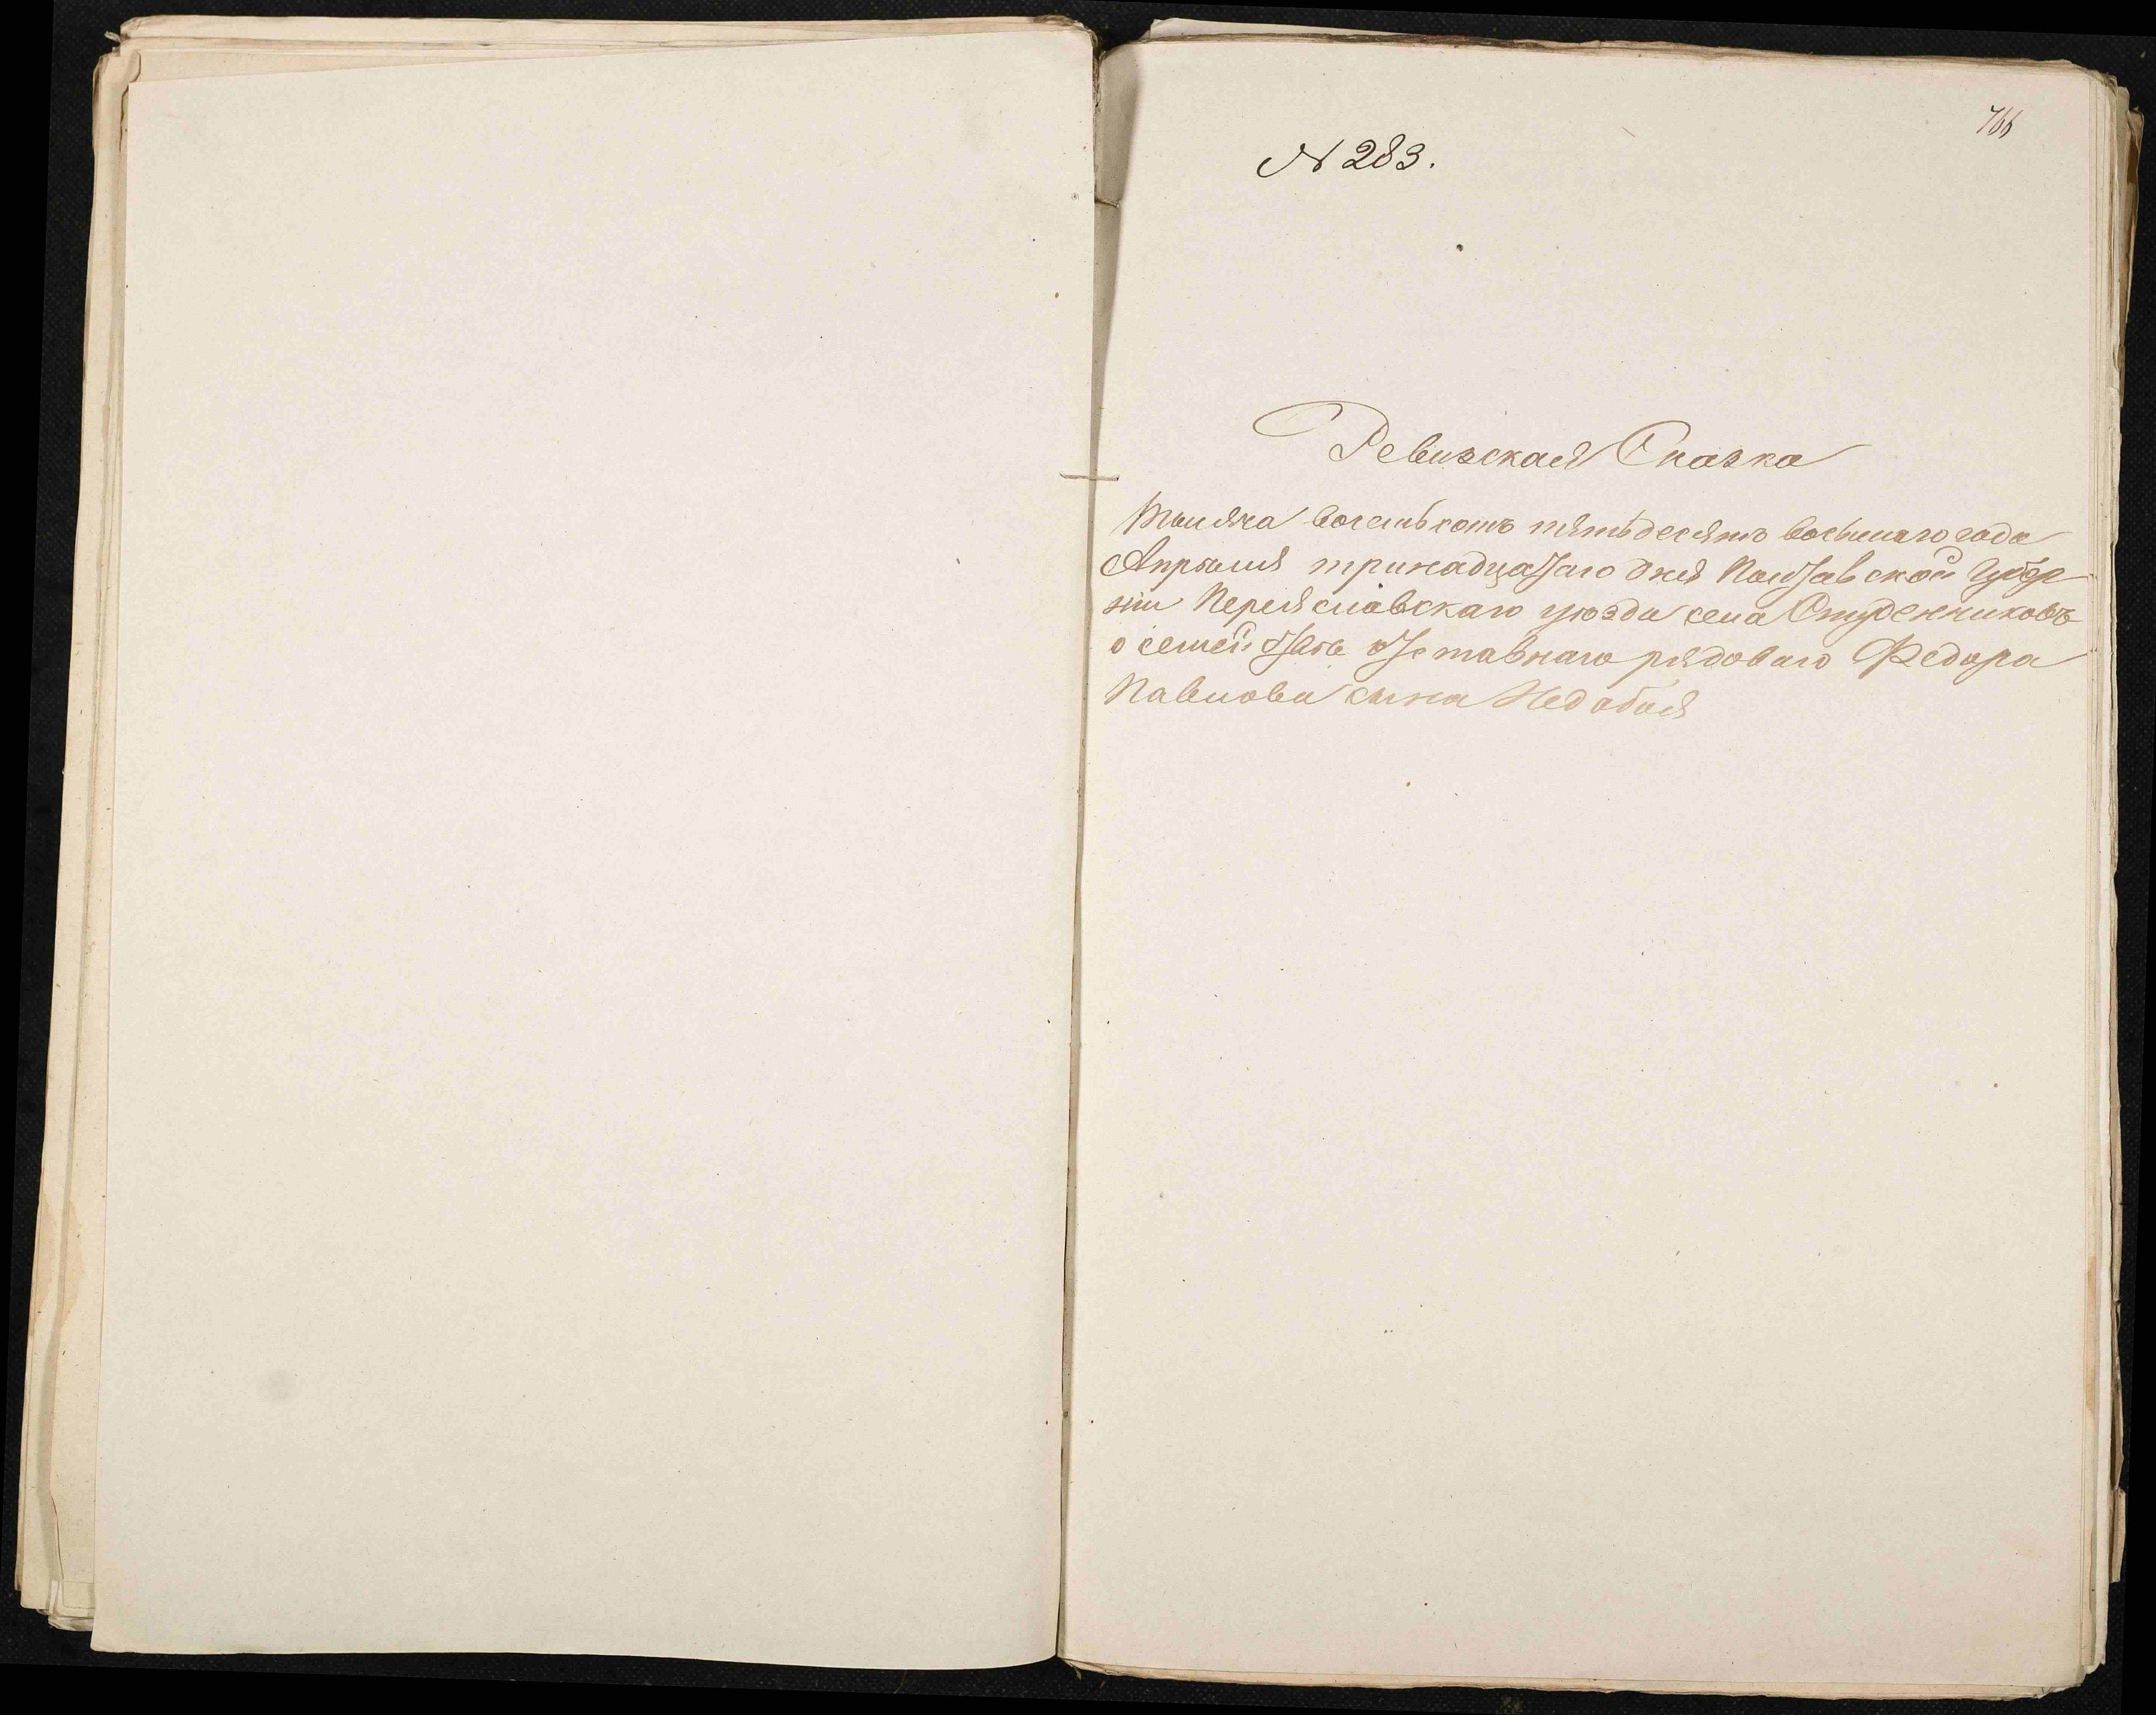 766
№ 283.
Ревизская Сказка
Тысяча восемьсотъ пятьдесятъ восьмаго года
Апрѣля тринадцатаго дня Полтавской Губер
ніи Переяславскаго уѣзда села Студенниковъ
о семействѣ отставнаго рядоваго Федора
Павлова сына Недобоя